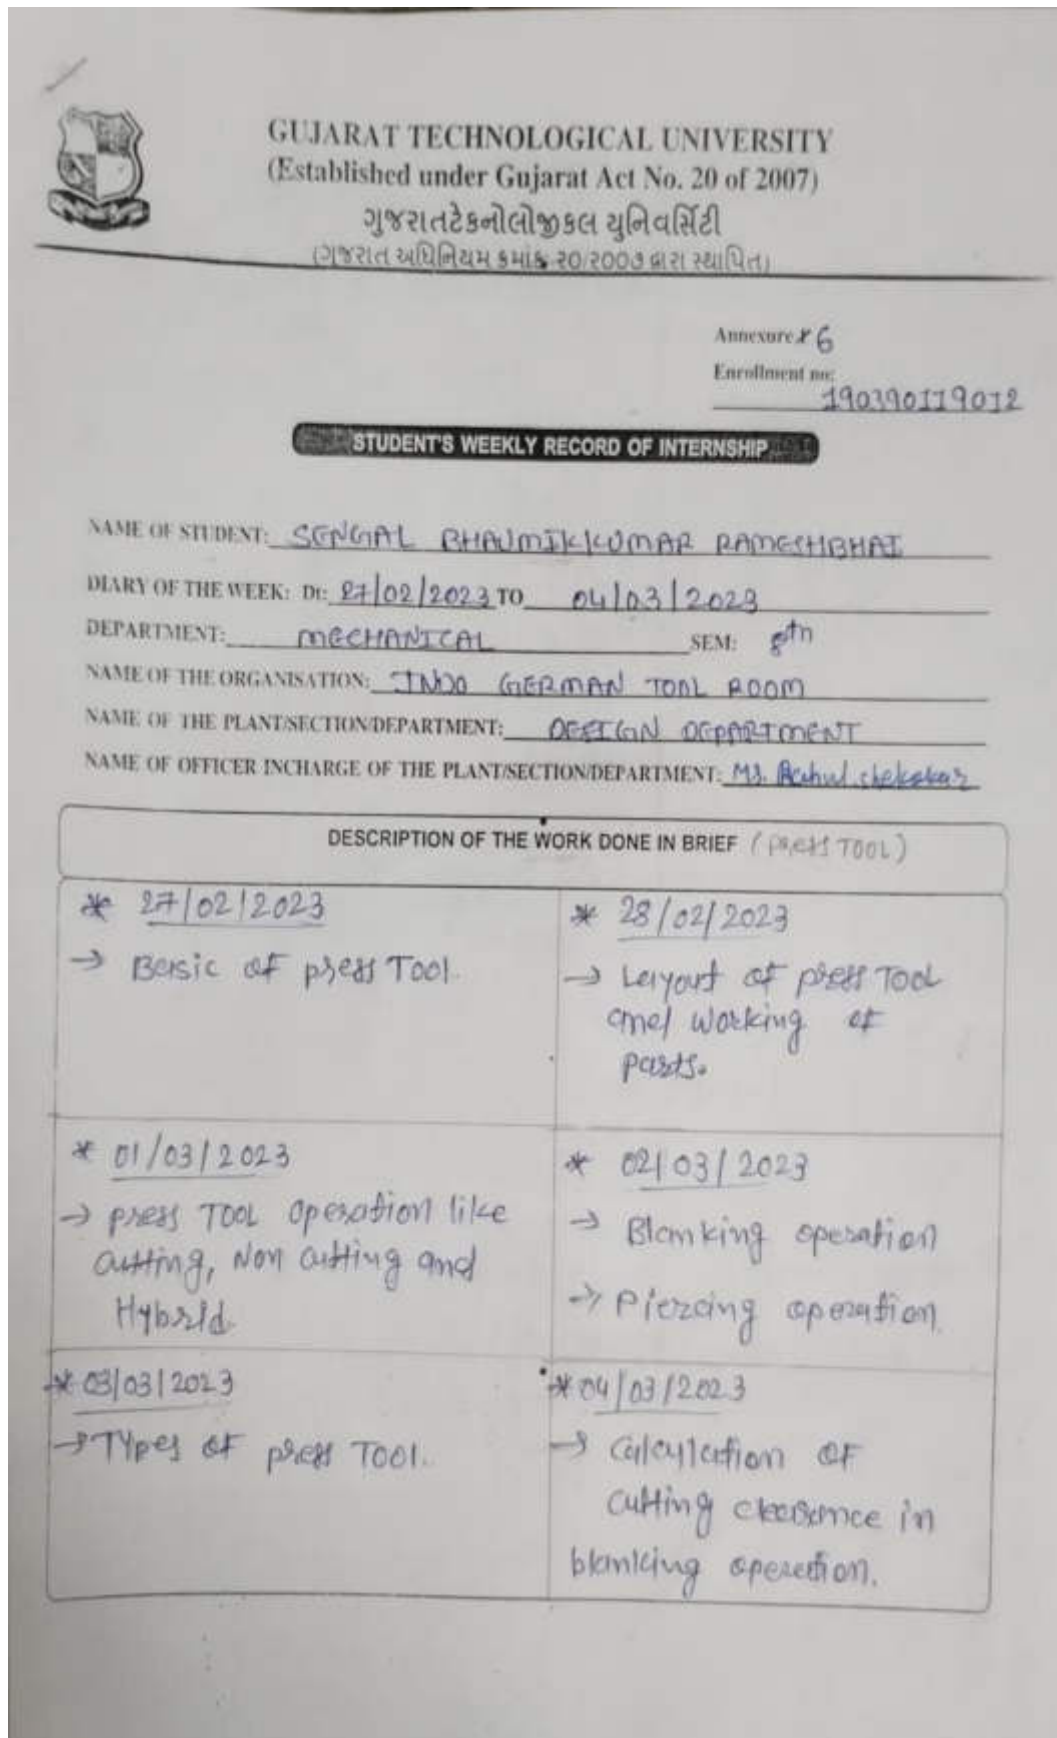 GUJARAT TECHNOLOGICAL UNIVERSITY
(Established under Gujarat Act No. 20 of 2007)
ગુજરાતટેકનોલોજીકલ યુનિવર્સિટી
(ગુજરાત અધિનિયમ ક્રમાંક ૨૦/૨૦૦૭ દ્વારા સ્થાપિત)
Annexure 6
Enrollment no:
190390119012
STUDENT'S WEEKLY RECORD OF INTERNSHIP
NAME OF STUDENT: SENGAL BHAUMIKKUMAR RAMESHBHAI
DIARY OF THE WEEK: Dt: 27/02/2023 TO 04/03/2023
DEPARTMENT: MECHANICAL SEM: 8th
NAME OF THE ORGANISATION: INDO GERMAN TOOL ROOM
NAME OF THE PLANT/SECTION/DEPARTMENT: DESIGN DEPARTMENT
NAME OF OFFICER INCHARGE OF THE PLANT/SECTION/DEPARTMENT: Rahul
DESCRIPTION OF THE WORK DONE IN BRIEF (press TOOL)
* 27/02/2023
→ Basic of press Tool.
* 28/02/2023
→ Layout of press TOOL
and working of
parts.
* 01/03/2023
→ press TOOL operation like
cutting, Non cutting and
Hybrid.
* 02/03/2023
→ Blanking operation
→ Piercing operation.
* 03/03/2023
→ Types of press TOOl.
* 04/03/2023
→ Calculation of
cutting clearance in
blanking operation.